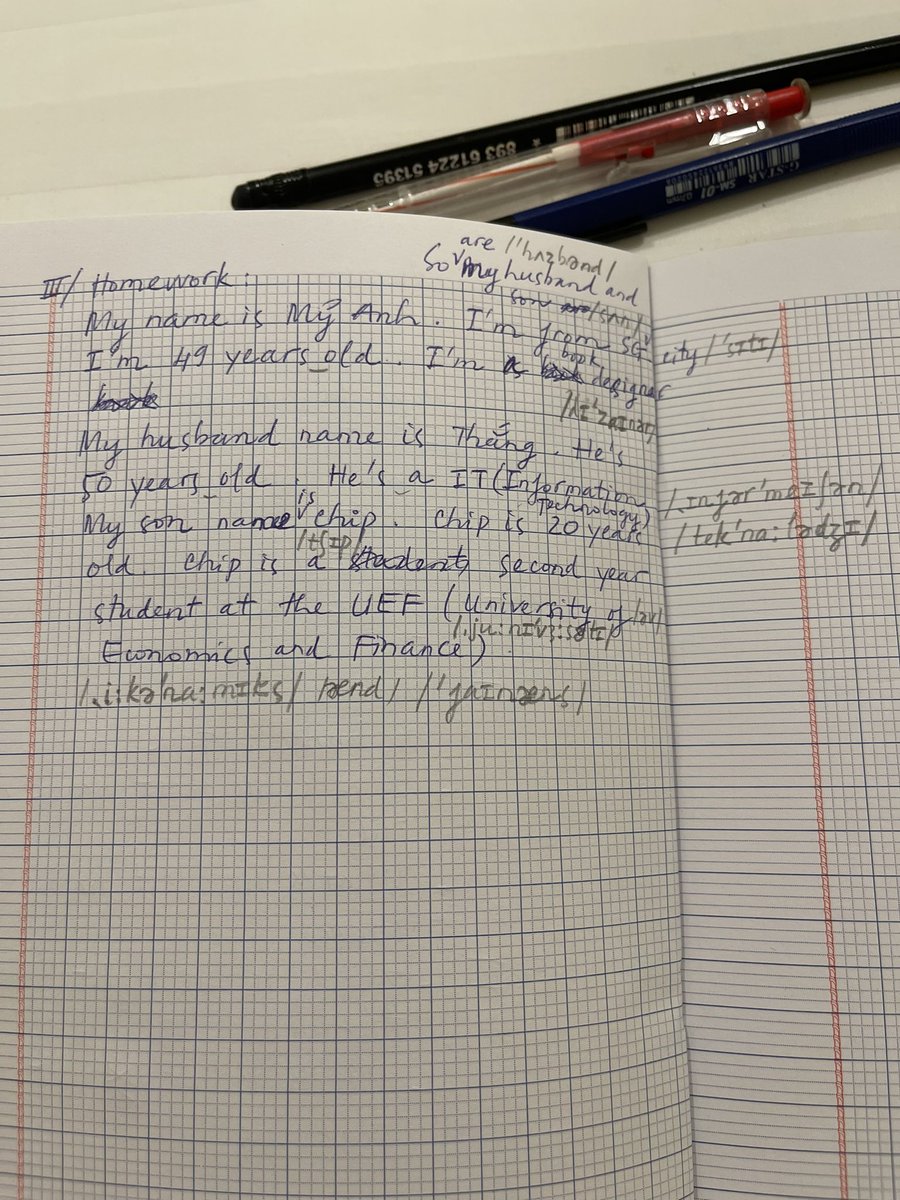 893 61224 51395
G-STAR SM-01 0.7mm
are /'hʌzbənd/
So my husband and
III/ Homework:
son /sʌn/
My name is Mỹ Anh. I'm from SG city /'sɪti/
book
I'm 49 years old. I'm a designer
My husband name is Thắng. He's
50 years old. He's a IT (Information
Technology)
/ˌɪnfər'meɪʃən/
is
My son name chip. Chip is 20 years
/tʃɪp/
/tek'nɑ:lədʒɪ/
old. Chip is a second year
student at the UEF (University of /əv/
Economics and Finance).
/ˌi:kə'nɑ:mɪks/ /ænd/